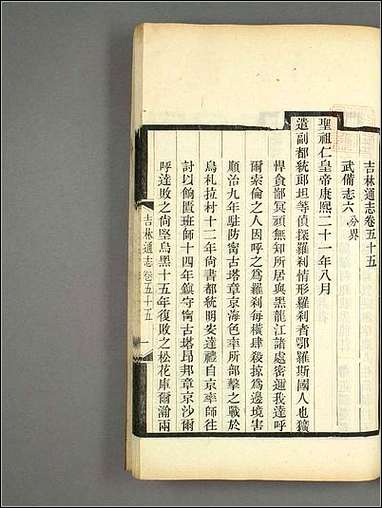 吉林通志卷五十五
武備志六 分界
聖祖仁皇帝康熙二十一年八月
遣副都統郎坦等偵探羅刹情形羅刹者鄂羅斯國人也獷
悍貪鄙冥頑無知所居與黑龍江諸處密邇我達呼
爾索倫之人因呼之為羅刹每橫肆殺掠為邊境害
順治九年駐防甯古塔章京海色率所部擊之戰於
烏札拉村十二年尚書都統明安達禮自京率師往
討以餉匱班師十四年鎮守甯古塔昂邦章京沙爾
呼達敗之尚堅烏黑十五年復敗之松花庫爾瀚兩
吉林通志 卷五十五
一